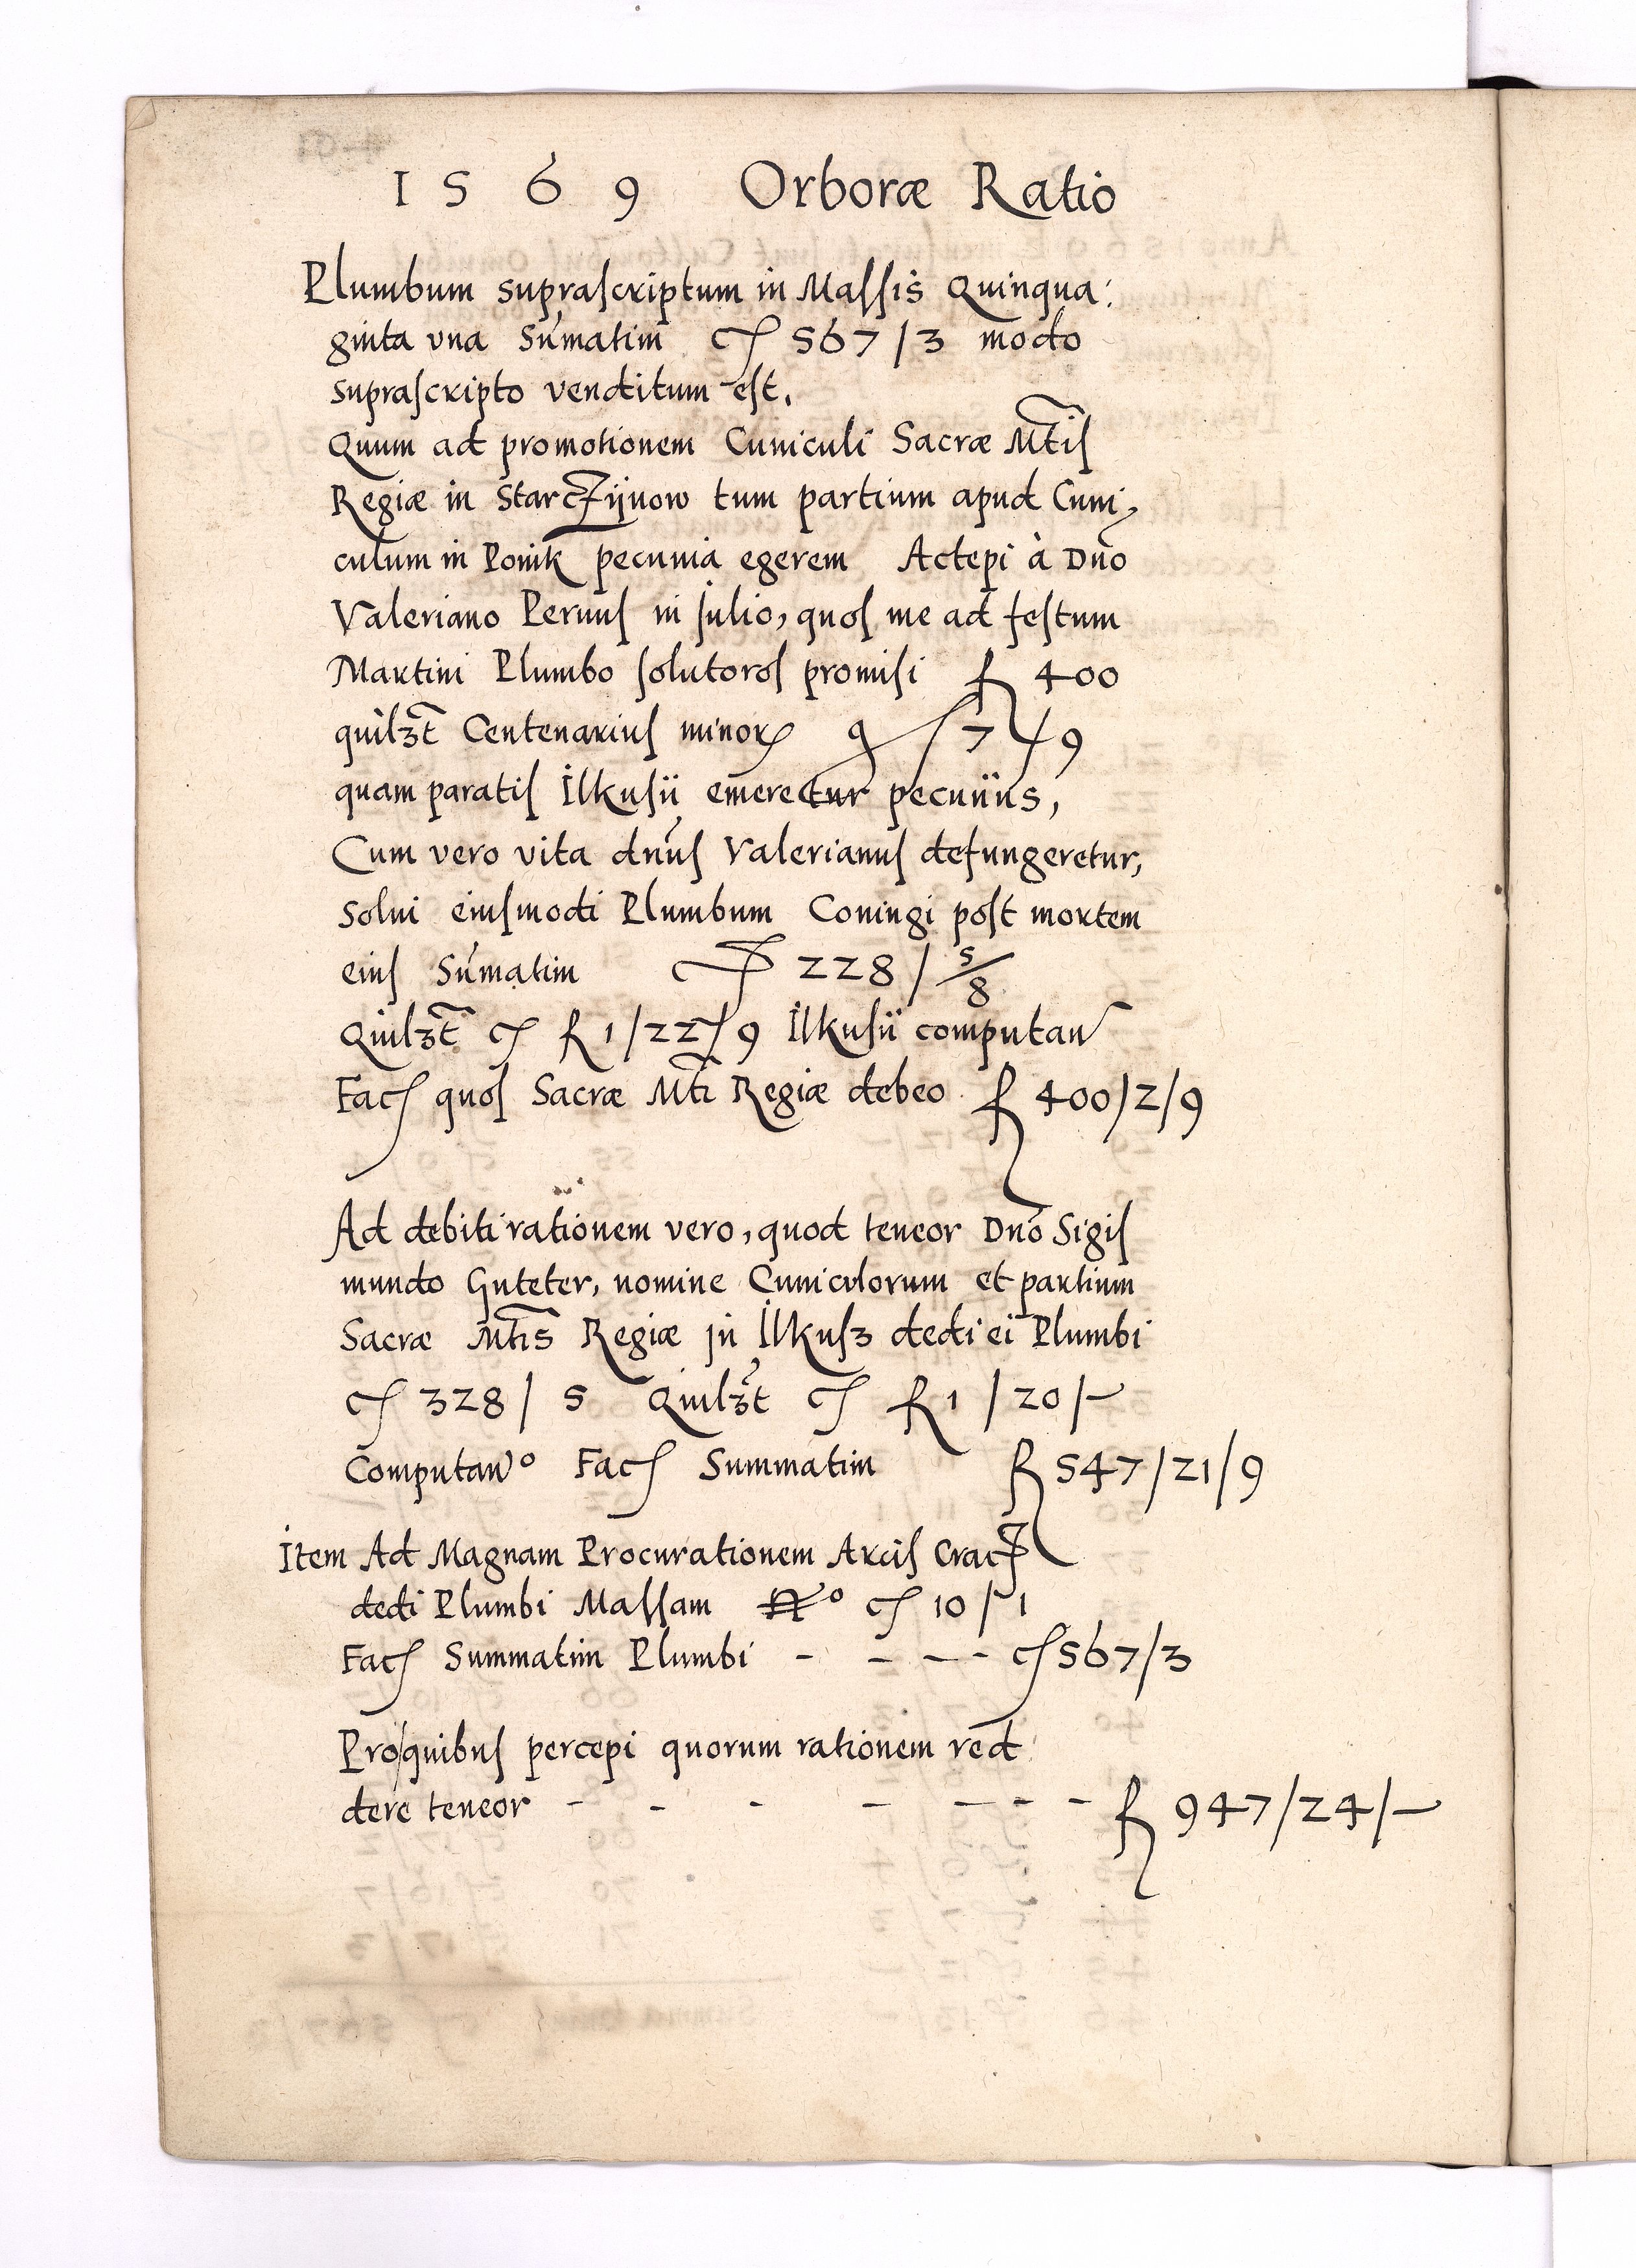 1569 Orboræ Ratio
Plumbum suprascriptum in Massis Quinqua:
ginta vna Sum̃atim cẜ 567/3 modo
suprascripto venditum est.
Quum ad promotionem Cuniculi Sacræ Mt̃is
Regiæ in Starczÿnow tum partium apud Cuni,
culum in Ponik pecunia egerem Accepi à Dño
Valeriano Pernus in Julio, quos me ad festum
Martini Plumbo soluturos promisi ƒ 400
quilʒt̃ Centenarius minori g /7/9
quam paratis Ilkusii emeretur pecuniis,
Cum vero vita dñus Valerianus defungeretur,
Solui eiusmodi Plumbum Coniugi post mortem
eius Sum̃atim cẜ 228/ 5/8
Quilʒt̃ cẜ ƒ 1/22/9 Ilkusii computat̃
Facẜ quos Sacræ Mt̃i Regiæ debeo ƒ 400/2/9
Ad debiti rationem vero, quod teneor Dño Sigis
mundo Guteter, nomine Cuniculorum et partium
Sacræ Mt̃is Regiæ in Ilkusʒ dedi ei Plumbi
cẜ 328/ 5 Quilʒt̃ cẜ ƒ 1/20/-
Computato Facẜ Summatim ƒ 547/21/9
Item Ad Magnam Procurationem Arcis Cracẜ
dedi Plumbi Massam cẜ 10/1
Facẜ Summatim Plumbi - - - - cẜ 567/3
Pro quibus percepi quorum rationem red
dere teneor - - - - - - - ƒ 947/24/-